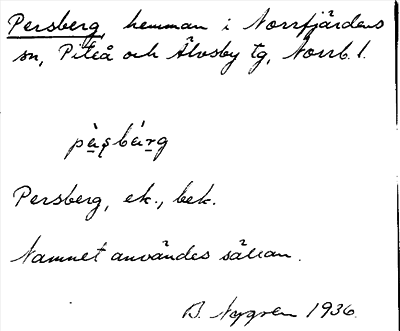 Persberg, hemman i Norrfjärdens
sn, Piteå och Älvsby tg, Norrb. l.
pä̀ʂbárg
Persberg, ek., bek.
Namnet användes sällan.
B. Nygren 1936.